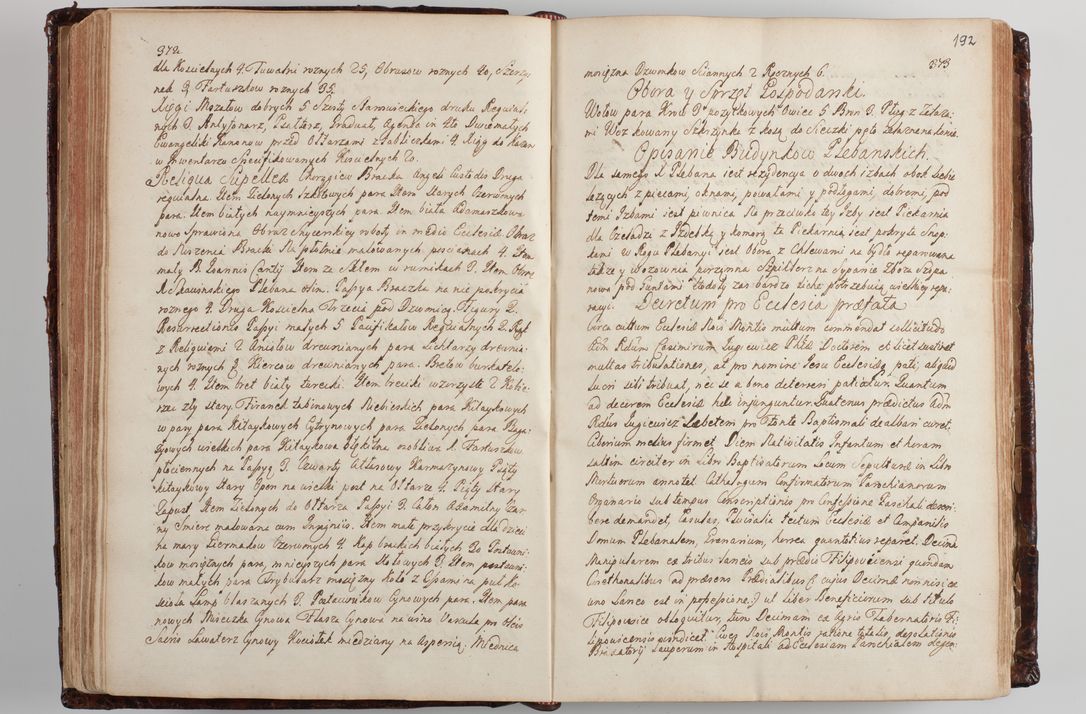 372
dla Kościelnych 4. Tuwalni roznych 25, Obrusow roznych 40, Szerzy
nek 3. Fartuszkow roznych 35.
Xięgi Mszałow dobrych 5 Szosty Parniskiego druku Requial
nych 3. Antyfonarz, Psałterz, Graduał, Agenda in 4to Dwie małych
Ewangeliki Kanonow przed Ołtarzami z Tabliczkami 4. Xiąg do Kazan
w Inwentarzu Specifikowanych Kościelnych 20.
Reliqua Supellex Chorągiew Bracka Angeli Custodis Druga
requialna. Item Zielonych Szkolnych para Item Starych Czerwonych
para. Item białych naymnieyszych para Item biała Adamaszkowa
nowo Sprawiona Obraz Snycerskiey roboty in medio Ecclesiæ Obraz
do Noszenia Bracki Na płotnie malowanych po scianach 4. Item
mały B. Joannis Cantij Item za Szkłem w ramkach 3. Item Obraz
Plebana olim. Passya Bracka na niey pokrycia
roznego 4. Druga Kościelna Trzecia pod Dzwonicą. Figury 2.
Resurrectionis Passyi małych 5 Pacifikałow Requialnych 2.
z Reliquiami 2 Aniołow drewnianych para Lichtarzy drewnia:
nych roznych 3 Kiercow drewnianych para. Bretow burkatelo:
wych 4. Item bret biały turecki. Item brecikí wzorzyste 2 Kobie:
rze zły stary. Firanek tabinowych Niebieskich para Kitaykowych
w pasy para Kitaykowych Cytrynowych para Zielonych para Baga:
zyowych wielkich para Kitaykowa błękitna osobliwa 1. Fartuszkow
płociennych na Passyą 3. Czwarty Atłasowy Karmazynowy Piąty
kitaykowy Stary Open na wielki post na Ołtarze 4. Piąty Stary
Zapust. Item Zielonych do Ołtarza Passyi 3. Całun Axamitny Czar
ny Smierć malowana cum Insignijs. Item małe przykrycie dla Dzieci
na mary Liermałow Czerwonych 4. Kap brackich białych 20 Postawni:
kow mosiężnych para, mnieyszych para Stołowych 3. Item postawni:
kow małych para Trybularz mosiężny Koło z Osami na puł Ko:
scioła Lamp blaszanych 3. Postawnikow Cynowych para. Item para
nowych Miseczka Cynowa Flasza Cynowa na wino Vascula pro Oleis
Sacris Lawaterz Cynowy Kociołek miedziany na aspersią. Miednica

192
373
mosiężna Dzwonkow Sciannych 2 Ręcznych 6.
Obora y Sprzęt Gospodarski.
Wołow para Krow 3 pozytkowych Owiec 5 Bron 3. Pług z Zelaza:
mi Woz kowany Skrzynka z kosą do Sieczki Piła zelazna na Konie.
Opisanie Budynkow Plebańskich.
Dla samego X. Plebana iest rezydencya o dwoch izbach obok siebie
lezących z piecami, oknami, powałami y podłogami, dobremi, pod
temi Izbami iest piwnica Na przeciwko tey Izby iest Piekarnia
dla Czeladzi z Izdebką y komorą ta Piekarnia iest pokryta Snop:
kami w Rogu Plebanyi iest Obora z Chlewami na bydło reparowana
także y Wozownia porządna Szpiklerz na Sypanie Zboża Szopa
nowa pod Saniami Stodoły zas bardzo złe potrzebuią wielkiey repa:
racyi.
Decretum pro Ecclesia præfata
Circa cultum Ecclesiæ Novi Montis multum commendat sollicitudo
Adm Rdum Casimirum Jugiewicz Phliæ Doctorem et licet sustinet
multas tribulationes, at pro nomine Jesu Ecclesiæq pati, aliquid
lucri sibi tribuat, nec se a bono deterreri patiatur. Quantum
ad decorem Ecclesiæ hæc injunguntur. Quatenus prædictus Adm
Rdus Jugiewicz Labetem pro Fonte Baptismali dealbari curet.
Ciborium melius firmet Diem Nativitatis Infantum et horam
saltim circiter in Libro Baptisatorum Locum Sepulturæ in Libro
Mortuorum annotet Cathalogum Confirmatorum Parochianorum
Organario sub tempus Conscriptionis pro Confessione Paschali descri:
bere demandet, Parules, Pluvialia tectum Ecclesiæ et Campanilis
Domum Plebanalem, Granarium, horrea quantotius reparet. Decima
Manipularem ex tribus laneis sub prædio Filipovicensi quondam
Cmethonalibus ad præsens Prædialibus (: cujus Decimæ non nisi ex
uno Laneo est in possessione:) ut liber Beneficiorum sub titulo
Filipowice obloquitur, tum Decimam ex Agris Tabernatoris Fi:
lipovicensis vindicet Cives Novi Montis ratione totalis, depositionis
Braxatorij Pauperum in Hospitali ad Ecclesiam Parochialem degen: